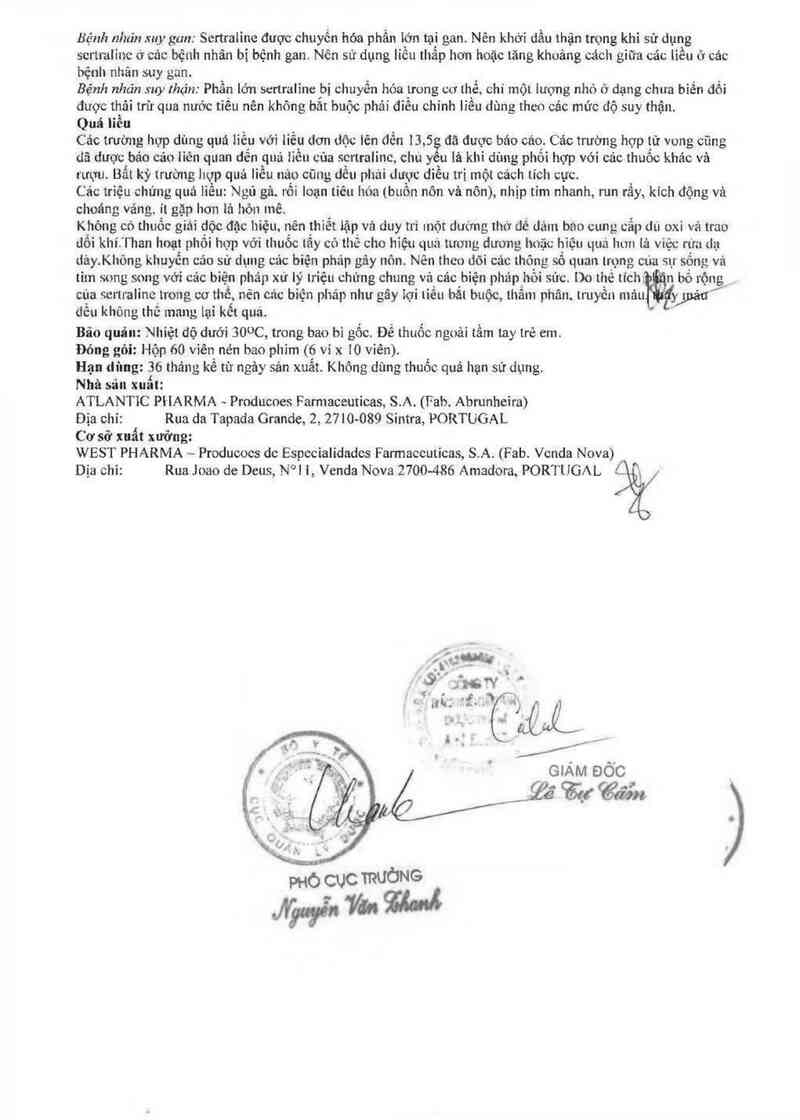 Bệnh nhân suy gan: Sertraline được chuyển hóa phần lớn tại gan. Nên khởi đầu thận trọng khi sử dụng
sertraline ở các bệnh nhân bị bệnh gan. Nên sử dụng liều thấp hơn hoặc tăng khoảng cách giữa các liều ở các
bệnh nhân suy gan.
Bệnh nhân suy thận: Phần lớn sertraline bị chuyển hóa trong cơ thể, chỉ một lượng nhỏ ở dạng chưa biến đổi
được thải trừ qua nước tiểu nên không bắt buộc phải điều chỉnh liều dùng theo các mức độ suy thận.
Quá liều
Các trường hợp dùng quá liều với liều đơn độc lên đến 13,5g đã được báo cáo. Các trường hợp tử vong cũng
đã được báo cáo liên quan đến quá liều của sertraline, chủ yếu là khi dùng phối hợp với các thuốc khác và
rượu. Bất kỳ trường hợp quá liều nào cũng đều phải được điều trị một cách tích cực.
Các triệu chứng quá liều: Ngủ gà, rối loạn tiêu hóa (buồn nôn và nôn), nhịp tim nhanh, run rẩy, kích động và
choáng váng, ít gặp hơn là hôn mê.
Không có thuốc giải độc đặc hiệu, nên thiết lập và duy trì một đường thở để đảm bảo cung cấp đủ oxi và trao
đổi khí.Than hoạt phối hợp với thuốc tẩy có thể cho hiệu quả tương đương hoặc hiệu quả hơn là việc rửa dạ
dày.Không khuyến cáo sử dụng các biện pháp gây nôn. Nên theo dõi các thông số quan trọng của sự sống và
tim song song với các biện pháp xử lý triệu chứng chung và các biện pháp hồi sức. Do thể tích phân bố rộng
của sertraline trong cơ thể, nên các biện pháp như gây lợi tiểu bắt buộc, thẩm phân, truyền máu, máu
đều không thể mang lại kết quả.
Bảo quản: Nhiệt độ dưới 30ºC, trong bao bì gốc. Để thuốc ngoài tầm tay trẻ em.
Đóng gói: Hộp 60 viên nén bao phim (6 vỉ x 10 viên).
Hạn dùng: 36 tháng kể từ ngày sản xuất. Không dùng thuốc quá hạn sử dụng.
Nhà sản xuất:
ATLANTIC PHARMA - Producoes Farmaceuticas, S.A. (Fab. Abrunheira)
Địa chỉ: Rua da Tapada Grande, 2, 2710-089 Sintra, PORTUGAL
Cơ sở xuất xưởng:
WEST PHARMA – Producoes de Especialidades Farmaceuticas, S.A. (Fab. Venda Nova)
Địa chỉ: Rua Joao de Deus, Nº11, Venda Nova 2700-486 Amadora, PORTUGAL
CÔNG TY
GIÁM ĐỐC
Lê Tự Cẩm
BỘ Y TẾ
CỤC QUẢN LÝ DƯỢC
PHÓ CỤC TRƯỞNG
Nguyễn Văn Thanh